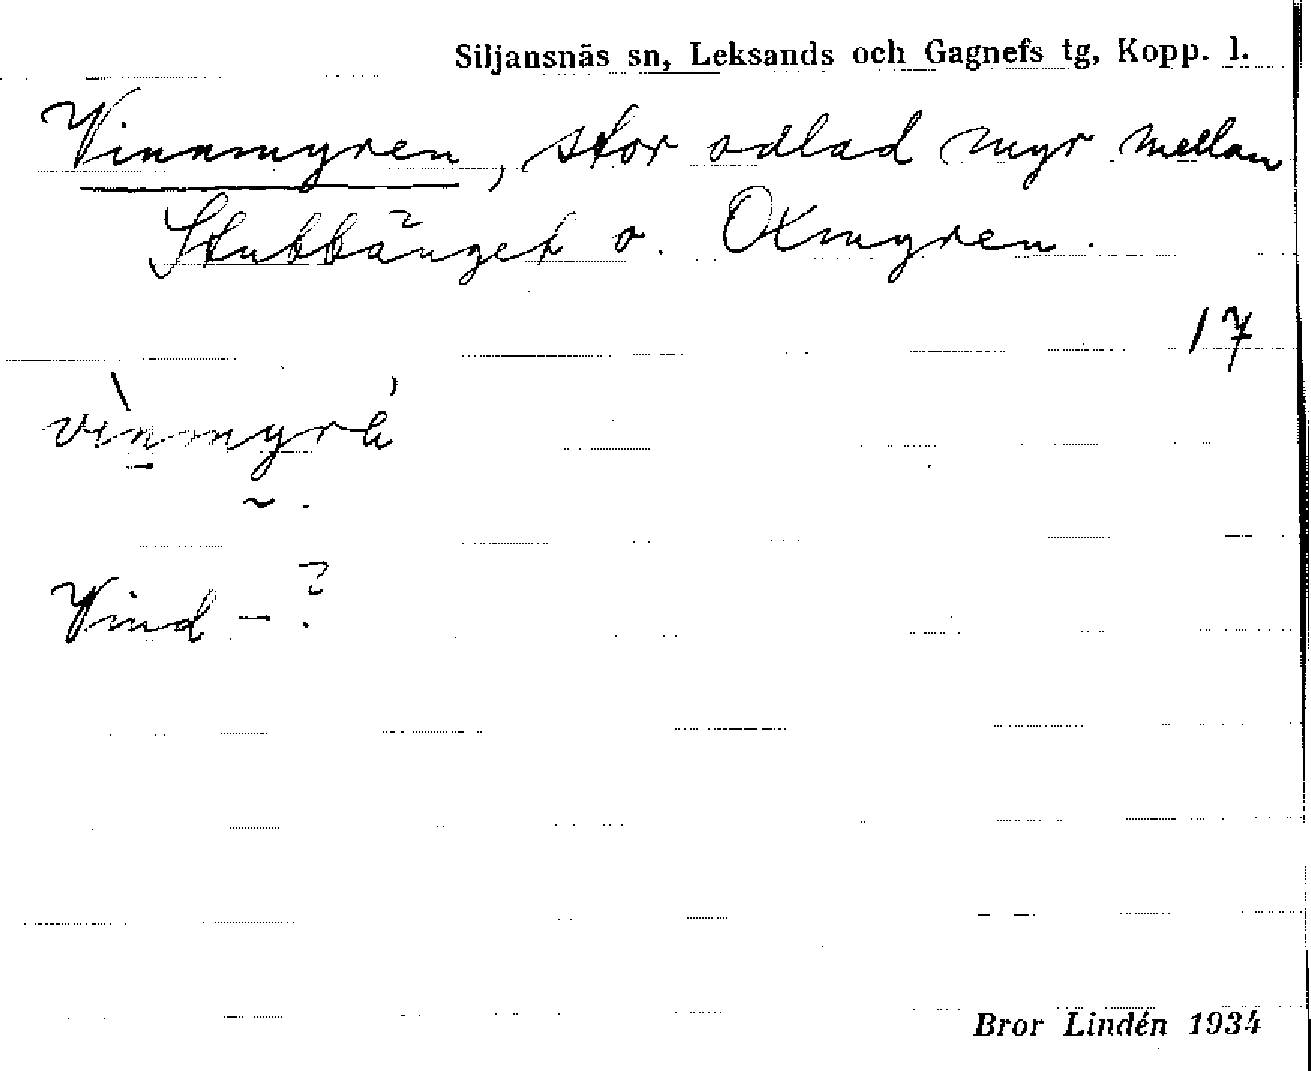 Siljansnäs sn, Leksands och Gagnefs tg, Kopp. l.
Vinnmyren, stor odlad myr mellan
Stubbänget o. Oxmyren.
17
Vind - ?
Bror Lindén 1934